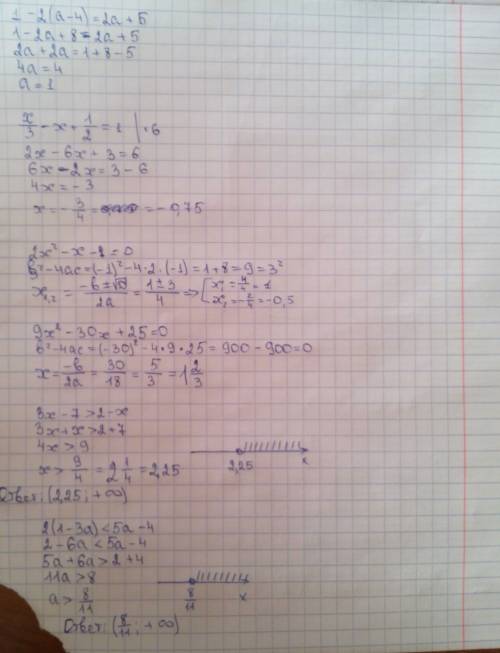 1 - 2(a - 4) = 2a + 5
1 - 2a + 8 = 2a + 5
2a + 2a = 1 + 8 - 5
4a = 4
a = 1
x/3 - x + 1/2 = 1 | ·6
2x - 6x + 3 = 6
6x - 2x = 3 - 6
4x = -3
x = -3/4 = = -0,75
2x² - x - 1 = 0
b² - 4ac = (-1)² - 4·2·(-1) = 1 + 8 = 9 = 3²
x₁,₂ = (-b ± √D)/2a = (1 ± 3)/4 ⇒ [ x₁ = 4/4 = 1
x₂ = -2/4 = -0,5
9x² - 30x + 25 = 0
b² - 4ac = (-30)² - 4·9·25 = 900 - 900 = 0
x = -b/2a = 30/18 = 5/3 = 1 2/3
3x - 7 > 2 - x
3x + x > 2 + 7
4x > 9
x > 9/4 = 2 1/4 = 2,25
2,25 x
Ответ: (2,25; +∞)
2(1 - 3a) < 5a - 4
2 - 6a < 5a - 4
5a + 6a > 2 + 4
11a > 8
a > 8/11
8/11 x
Ответ: (8/11; +∞)